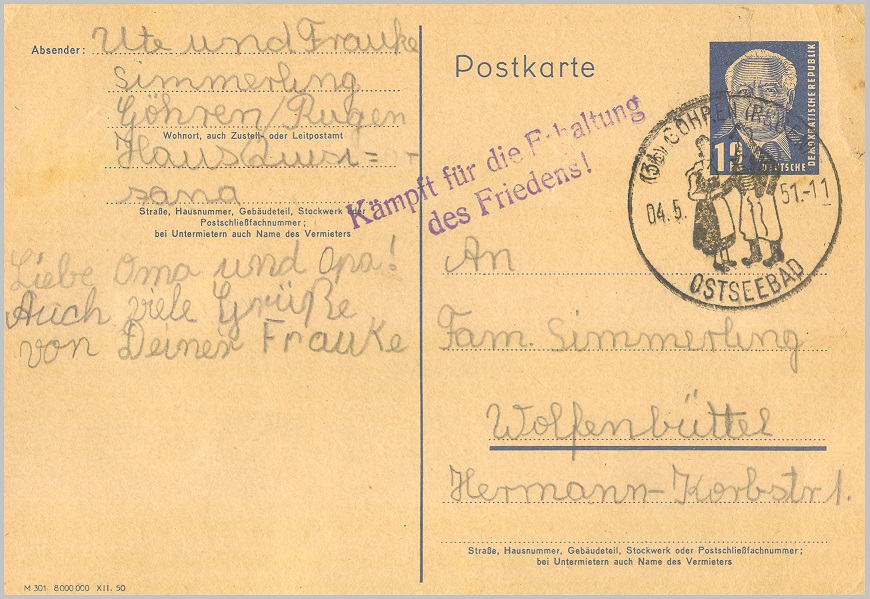 Absender: Ute und Frauke
Simmerling
Göhren/Rugen
Wohnort, auch Zustell- oder Leitpostamt
Haus Luisi=
sana
Straße, Hausnummer, Gebäudeteil, Stockwerk oder
Postschließfachnummer;
bei Untermietern auch Name des Vermieters
Liebe Oma und Opa!
Auch viele Grüße
von Deiner Frauke
M 301 8000000 XII. 50
Postkarte
Kämpft für die Erhaltung
des Friedens!
DEUTSCHE
DEMOKRATISCHE REPUBLIK
GÖHREN (RÜGEN)
04.5. 51.-11
OSTSEEBAD
An
Fam. Simmerling
Wolfenbüttel
Hermann-Korbstr 1.
Straße, Hausnummer, Gebäudeteil, Stockwerk oder Postschließfachnummer;
bei Untermietern auch Name des Vermieters